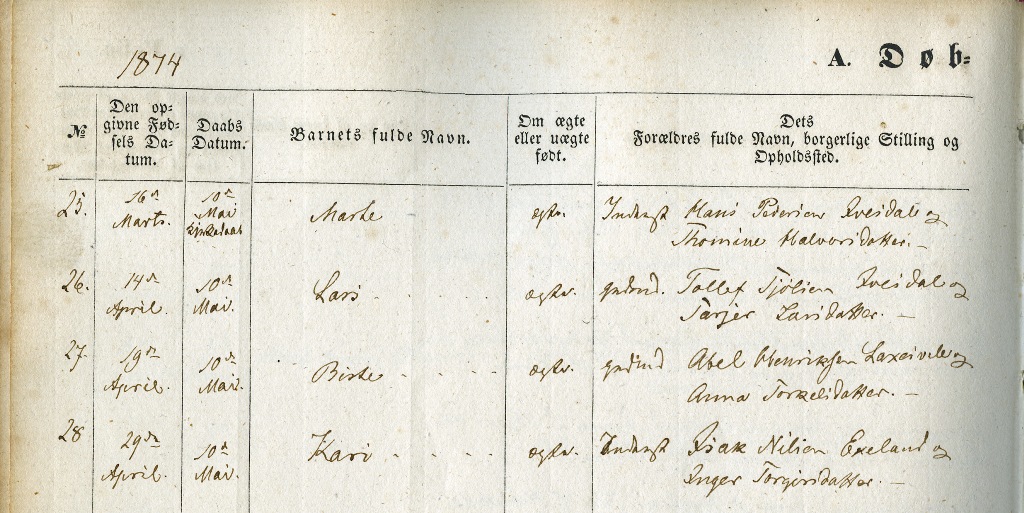 1874
A. Døb=
№
Den op=
givne Fød=
sels Da=
tum.
Daabs
Datum.
Barnets fulde Navn.
Om ægte
eller uægte
født.
Dets
Forældres fulde Navn, borgerlige Stilling og
Opholdssted.
25. 16de Marts. 10de Mai Marthe ægte. Inderst Hans Pedersen Kvesdal og
Thomine Halvorsdatter. –
26. 14de April. 10de Mai. Lars ægte. gndmd. Tollef Kvesdal og
Larsdatter. –
27. 19de April. 10de Mai. Birthe ægte. gndmd Abel Henriksen og
Anna Torkelsdatter. –
28 29de April. 10de Mai. Kari ægte. Inderst Isak Nilsen Egeland og
Inger Torgersdatter. –